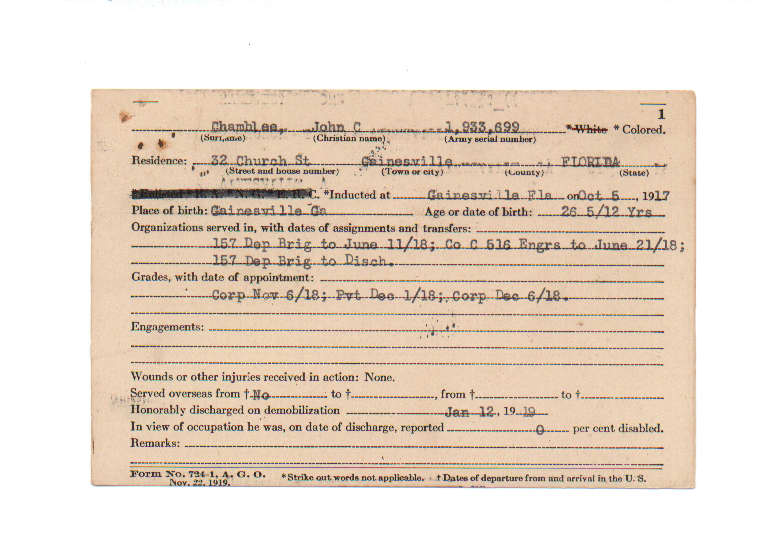 1
Chamblee, John C 1,933,699 *White * Colored.
(Surname) (Christian name) (Army serial number)
Residence: 32 Church St Gainesville FLORIDA
(Street and house number) (Town or city) (County) (State)
C. *Inducted at Gainesville Fla on Oct 5, 1917
Place of birth: Gainesville Ga Age or date of birth: 26 5/12 Yrs
Organizations served in, with dates of assignments and transfers:
157 Dep Brig to June 11/18; Co C 516 Engrs to June 21/18;
157 Dep Brig to Disch.
Grades, with date of appointment:
Corp Nov 6/18; Pvt Dec 1/18; Corp Dec 6/18.
Engagements:
Wounds or other injuries received in action: None.
Served overseas from † No to †, from † to †
Honorably discharged on demobilization Jan 12, 19 19
In view of occupation he was, on date of discharge, reported 0 per cent disabled.
Remarks:
Form No. 724-1, A. G. O. *Strike out words not applicable. † Dates of departure from and arrival in the U. S.
Nov. 22, 1919.